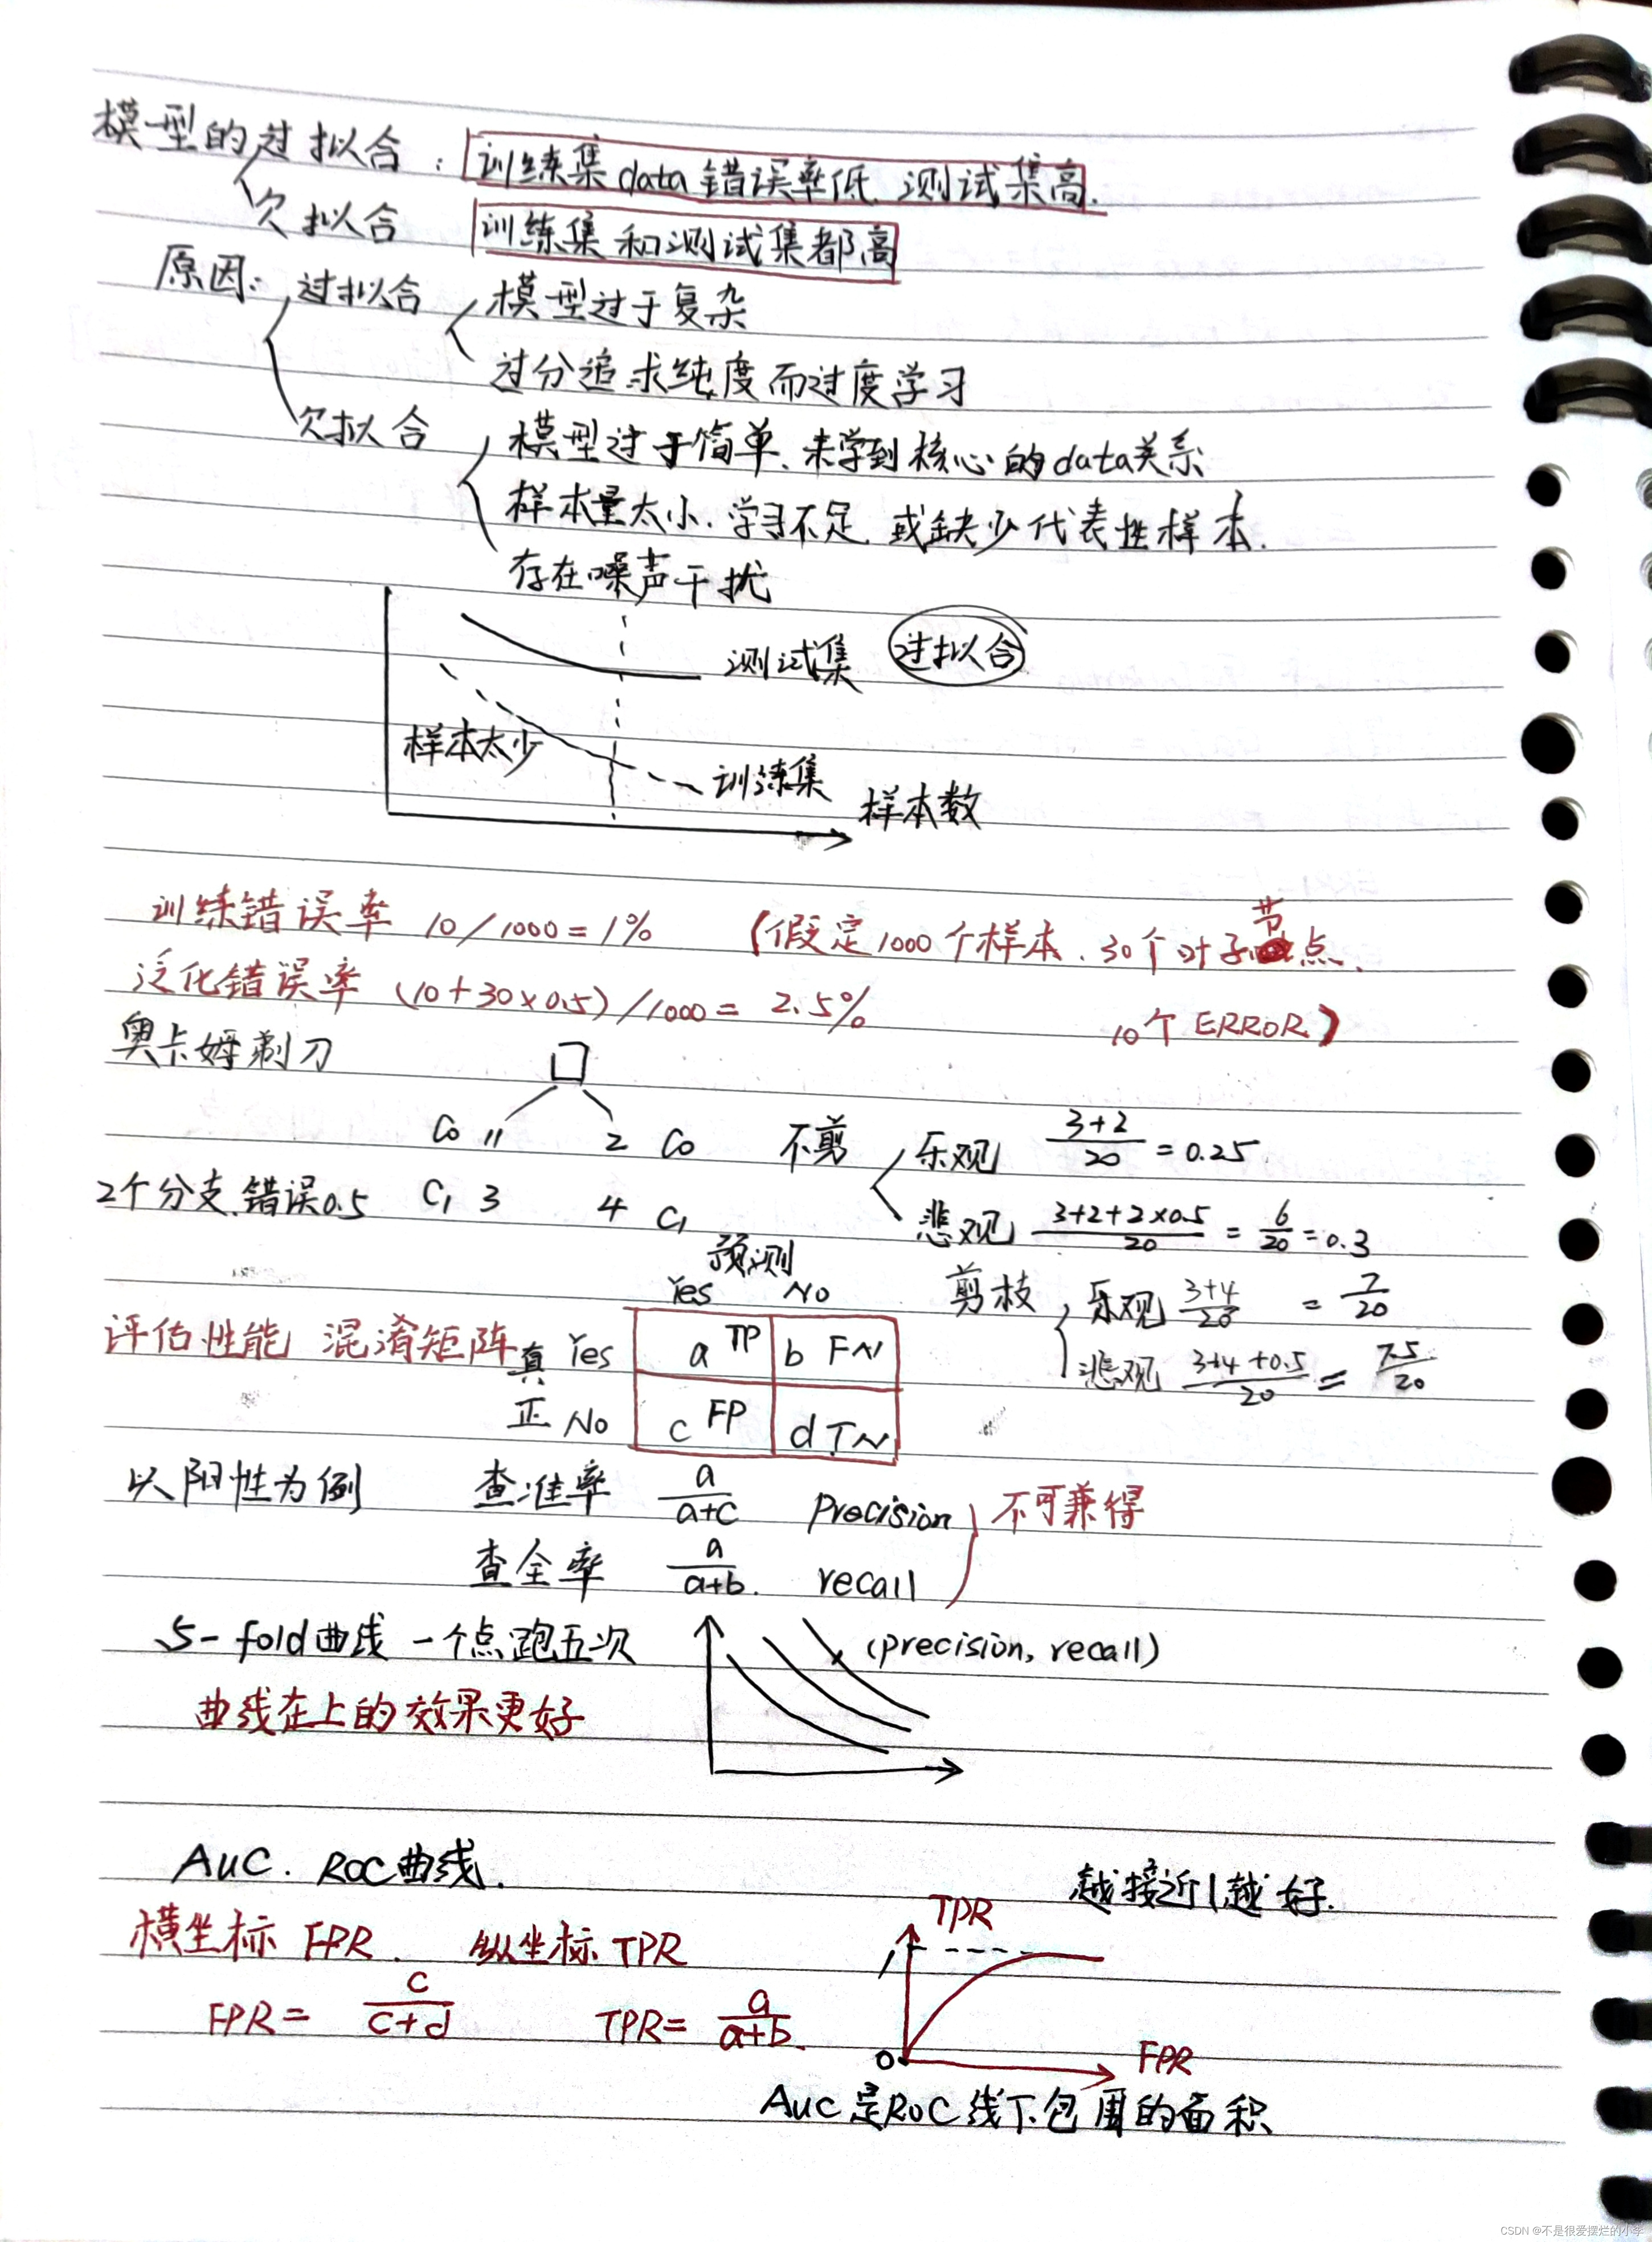 模型的过拟合：训练集data错误率低.测试集高.
欠拟合 训练集和测试集都高
原因：过拟合 模型过于复杂
过分追求纯度而过度学习
欠拟合 模型过于简单、未学到核心的data关系
样本量太小.学习不足.或缺少代表性样本.
存在噪声干扰
测试集 过拟合
样本太少
训练集 样本数
训练错误率 10/1000=1% (假定1000个样本.30个叶子节点.
泛化错误率 (10+30×0.5)/1000= 2.5% 10个ERROR)
奥卡姆剃刀
C0 11 2 C0 不剪 乐观 3+2/20 =0.25
2个分支.错误0.5 C1 3 4 C1 悲观 3+2+2×0.5/20 = 6/20 =0.3
预测
Yes No 剪枝 乐观 3+4/20 = 7/20
评估性能 混淆矩阵 真 Yes a TP b FN 悲观 3+4+0.5/20 = 7.5/20
正 No c FP d TN
以阳性为例 查准率 a/a+c precision 不可兼得
查全率 a/a+b. recall
5-fold曲线 一个点跑五次 (precision, recall)
曲线在上的效果更好
AUC. ROC曲线. 越接近1越好.
横坐标 FPR. 纵坐标TPR TPR
1
FPR= c/c+d TPR= a/a+b.
0 FPR
AUC是ROC线下包围的面积
CSDN @不是很爱摆烂的小李